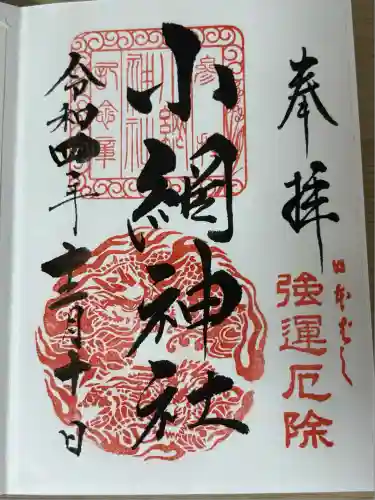 奉拝
日本ばし
強運厄除
小網神社
令和四年
十二月十日